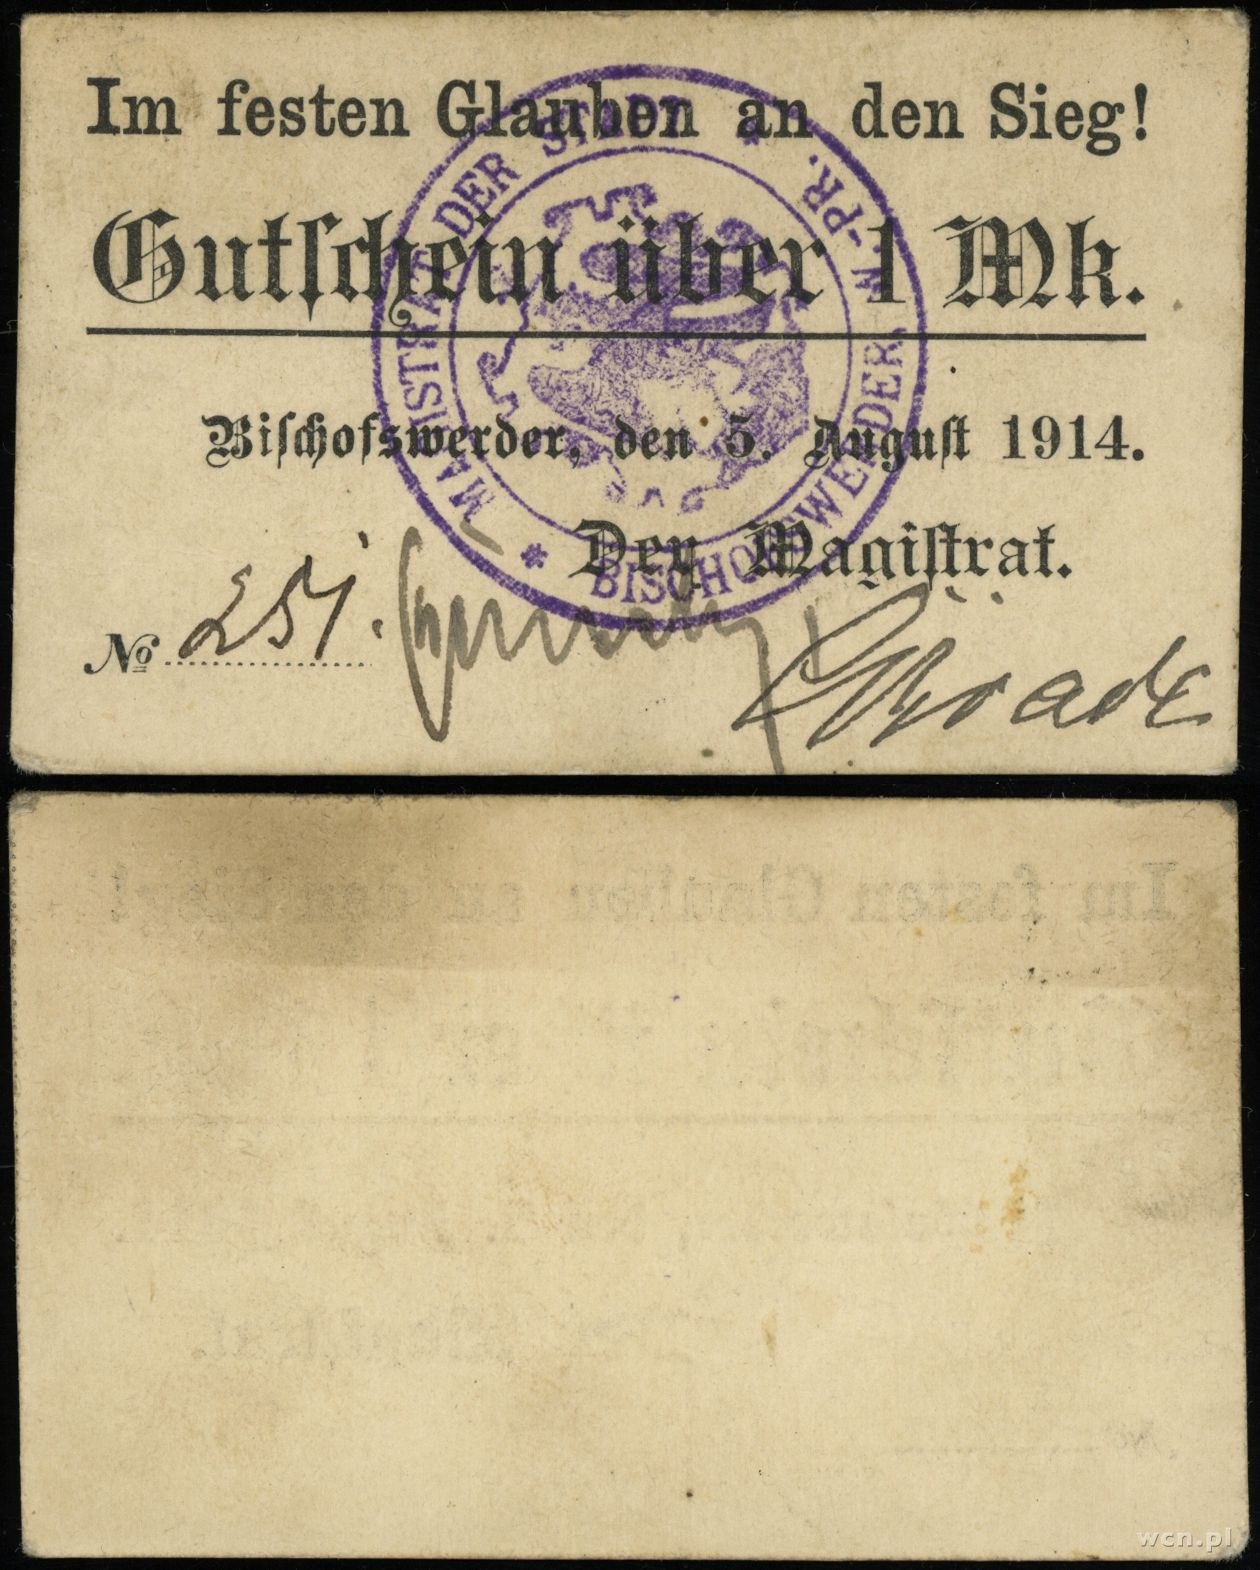 Im festen Glauben an den Sieg!
Gutschein über 1 Mk.
Bischofswerder, den 5. August 1914.
Der Magistrat.
No 251.
MAGISTRAT DER STADT * BISCHOFSWERDER W.-PR. *
wcn.pl